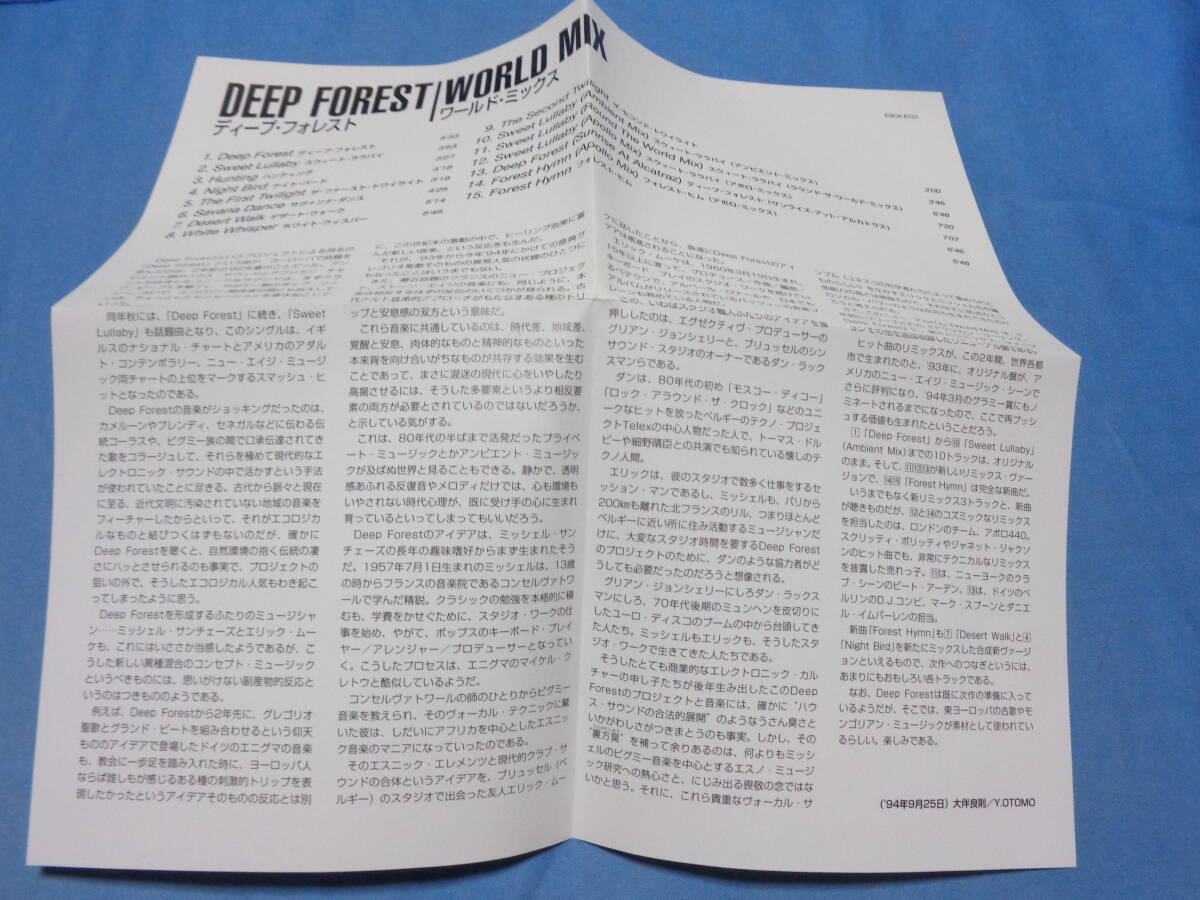 DEEP FOREST/WORLD MIX
ディープ・フォレスト
ワールド・ミックス
ESCA 6122
1. Deep Forest ディープ・フォレスト
2. Sweet Lullaby スウィート・ララバイ
3. Hunting ハンティング
4. Night Bird ナイト・バード
5. The First Twilight ザ・ファースト・トワイライト
6. Savana Dance サヴァンナ・ダンス
7. Desert Walk デザート・ウォーク
8. White Whisper ホワイト・ウィスパー
5:33
3:53
3:27
4:18
3:18
4:25
5:14
5:45
9. The Second Twilight ザ・セコンド・トワイライト
10. Sweet Lullaby (Ambient Mix) スウィート・ララバイ (アンビエント・ミックス)
11. Sweet Lullaby (Round The World Mix) スウィート・ララバイ (ラウンド・ザ・ワールド・ミックス)
12. Sweet Lullaby (Apollo Mix) スウィート・ララバイ (アポロ・ミックス)
13. Deep Forest (Sunrise At Alcatraz) ディープ・フォレスト (サンライズ・アット・アルカトラズ)
14. Forest Hymn (Apollo Mix) フォレスト・ヒム (アポロ・ミックス)
15. Forest Hymn フォレスト・ヒム
3:00
3:46
6:48
7:20
7:07
6:46
5:48
同年秋には、「Deep Forest」に続き、「Sweet
Lullaby」も話題曲となり、このシングルは、イギ
ルスのナショナル・チャートとアメリカのアダル
ト・コンテンポラリー、ニュー・エイジ・ミュージ
ック両チャートの上位をマークするスマッシュ・ヒ
ットとなったのである。
Deep Forestの音楽がショッキングだったのは、
カメルーンやブレンディ、セネガルなどに伝わる伝
統コーラスや、ピグミー族の間で口承伝達されてき
た歌をコラージュして、それらを極めて現代的なエ
レクトロニック・サウンドの中で活かすという手法
が使われていたことに尽きる。古代から脈々と現在
に至る、近代文明に汚染されていない地域の音楽を
フィーチャーしたからといって、それがエコロジカ
ルなものと結びつくはずもないのだが、確かに
Deep Forestを聴くと、自然環境の抱く伝統の凄
さにハッとさせられるのも事実で、プロジェクトの
狙いの外で、そうしたエコロジカル人気もわき起こ
ってしまったように思う。
Deep Forestを形成するふたりのミュージシャ
ン……ミッシェル・サンチェーズとエリック・ムー
ケも、これにはいささか当惑したようであるが、こ
うした新しい異種混合のコンセプト・ミュージック
というべきものには、思いがけない副産物的反応と
いうのはつきもののようである。
例えば、Deep Forestから2年先に、グレゴリオ
聖歌とグランド・ビートを組み合わせるという仰天
もののアイデアで登場したドイツのエニグマの音楽
も、教会に一歩足を踏み入れた時に、ヨーロッパ人
ならば誰しもが感じるある種の刺激的トリップを表
現したかったというアイデアそのものの反応とは別
に、この世紀末の激動の中で、ヒーリング効果に富
んだ新しい音楽、という反応をも生んだ。
それが、'93年から今年'94年にかけての原典グ
レゴリオ聖歌そのものの異常人気の伏線のひとつに
もなったことはいうまでもない。
ップと安息感の双方という意味だ。
これら音楽に共通しているのは、時代差、地域差、
覚醒と安息、肉体的なものと精神的なものといった
本来背を向け合いがちなものが共存する効果を生む
ことであって、まさに混迷の現代に心をいやしたり
高揚させるには、そうした多要素というより相反要
素の両方が必要とされているのではないだろうか、
と示している気がする。
これは、80年代の半ばまで活発だったプライベ
ート・ミュージックとかアンビエント・ミュージッ
クが及ばぬ世界と見ることもできる。静かで、透明
感あふれる反復音やメロディだけでは、心も環境も
いやされない時代心理が、既に受け手の心に生まれ
育っているといってしまってもいいだろう。
Deep Forestのアイデアは、ミッシェル・サン
チェーズの長年の趣味嗜好からまず生まれたそう
だ。1957年7月1日生まれのミッシェルは、13歳
の時からフランスの音楽院であるコンセルヴァトワ
ールで学んだ精鋭。クラシックの勉強を本格的に積
むも、学費をかせぐために、スタジオ・ワークの仕
事を始め、やがて、ポップスのキーボード・プレイ
ヤー／アレンジャー／プロデューサーとなってい
く。こうしたプロセスは、エニグマのマイケル・ク
レトウと酷似しているようだ。
コンセルヴァトワールの師のひとりからピグミー
音楽を教えられ、そのヴォーカル・テクニックに驚
いた彼は、しだいにアフリカを中心としたエスニッ
ク音楽のマニアになっていったのである。
そのエスニック・エレメンツと現代的クラブ・サ
ウンドの合体というアイデアを、ブリュッセル（ベ
ルギー）のスタジオで出会った友人エリック・ムー
ケに話したことから、急速にDeep Forestのアイ
デアは推進されることになった。
エリック・ムーケは、1960年3月19日生まれ。
この、いわばスタジオ職人ふたりのアイデアを後
押ししたのは、エグゼクティヴ・プロデューサーの
グリアン・ジョンシェリーと、ブリュッセルのシン
サウンド・スタジオのオーナーであるダン・ラック
スマンらである。
ダンは、80年代の初め「モスコー・ディコー」
「ロック・アラウンド・ザ・クロック」などのユニ
ークなヒットを放ったベルギーのテクノ・プロジェ
クトTelexの中心人物だった人で、トーマス・ドル
ビーや細野晴臣との共演でも知られている懐しのテ
クノ人間。
エリックは、彼のスタジオで数多く仕事をするセ
ッション・マンであるし、ミッシェルも、パリから
200kmも離れた北フランスのリル、つまりほとんど
ベルギーに近い所に住み活動するミュージシャンだ
けに、大変なスタジオ時間を要するDeep Forest
のプロジェクトのために、ダンのような協力者がど
うしても必要だったのだろうと想像される。
グリアン・ジョンシェリーにしろダン・ラックス
マンにしろ、70年代後期のミュンヘンを皮切りに
したユーロ・ディスコのブームの中から台頭してき
た人たち。ミッシェルもエリックも、そうしたスタ
ジオ・ワークで生きてきた人たちである。
そうしたとても商業的なエレクトロニック・カル
チャーの申し子たちが後年生み出したこのDeep
Forestのプロジェクトと音楽には、確かに“ハウ
ス・サウンドの合法的展開”のようなうさん臭さと
いかがわしさがつきまとうのも事実。しかし、その
“裏方魔”を補って余りあるのは、何よりもミッシ
ェルのピグミー音楽を中心とするエスノ・ミュージ
ック研究への熱心さと、にじみ出る畏敬の念ではな
いかと思う。それに、これら貴重なヴォーカル・サ
ヒット曲のリミックスが、この2年間、世界各都
市で生まれたのと、'93年に、オリジナル盤が、ア
メリカのニュー・エイジ・ミュージック・シーンで
さらに評判になり、'94年3月のグラミー賞にもノ
ミネートされるまでになったので、ここで再プッシ
ュする価値も生まれたということだろう。
①「Deep Forest」から⑩「Sweet Lullaby」
(Ambient Mix)までの10トラックは、オリジナル
のまま。そして、⑪⑫⑬が新しいリミックス・ヴァー
ジョンで、⑭⑮「Forest Hymn」は完全な新曲だ。
いうまでもなく新リミックス3トラックと、新曲
が聴きものだが、⑫と⑭のコズミックなリミックス
を担当したのは、ロンドンのチーム、アポロ440。
スクリッティ・ポリッティやジャネット・ジャクソ
ンのヒット曲でも、非常にテクニカルなリミックス
を披露した売れっ子。⑪は、ニューヨークのクラ
ブ・シーンのピート・アーデン。⑬は、ドイツのベ
ルリンのD.J.コンビ、マーク・スプーンとダニエ
ル・イムバーレンの担当。
新曲「Forest Hymn」も⑦「Desert Walk」と④
「Night Bird」を新たにミックスした合成新ヴァージ
ョンといえるもので、次作へのつなぎというには、
あまりにもおもしろい各トラックである。
なお、Deep Forestは既に次作の準備に入って
いるようだが、そこでは、東ヨーロッパの古歌やモ
ンゴリアン・ミュージックが素材として使われてい
るらしい。楽しみである。
('94年9月25日) 大伴良則／Y.OTOMO